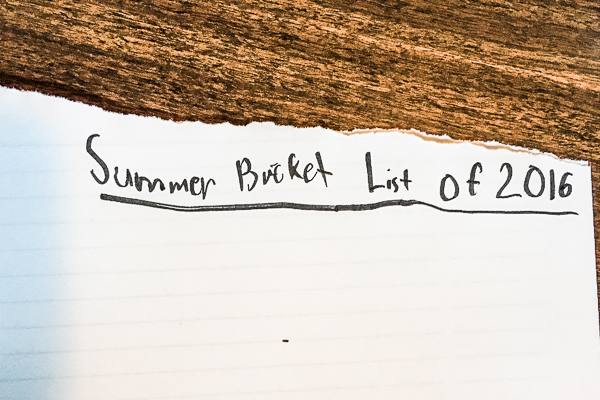 Summer Bucket List of 2016
-